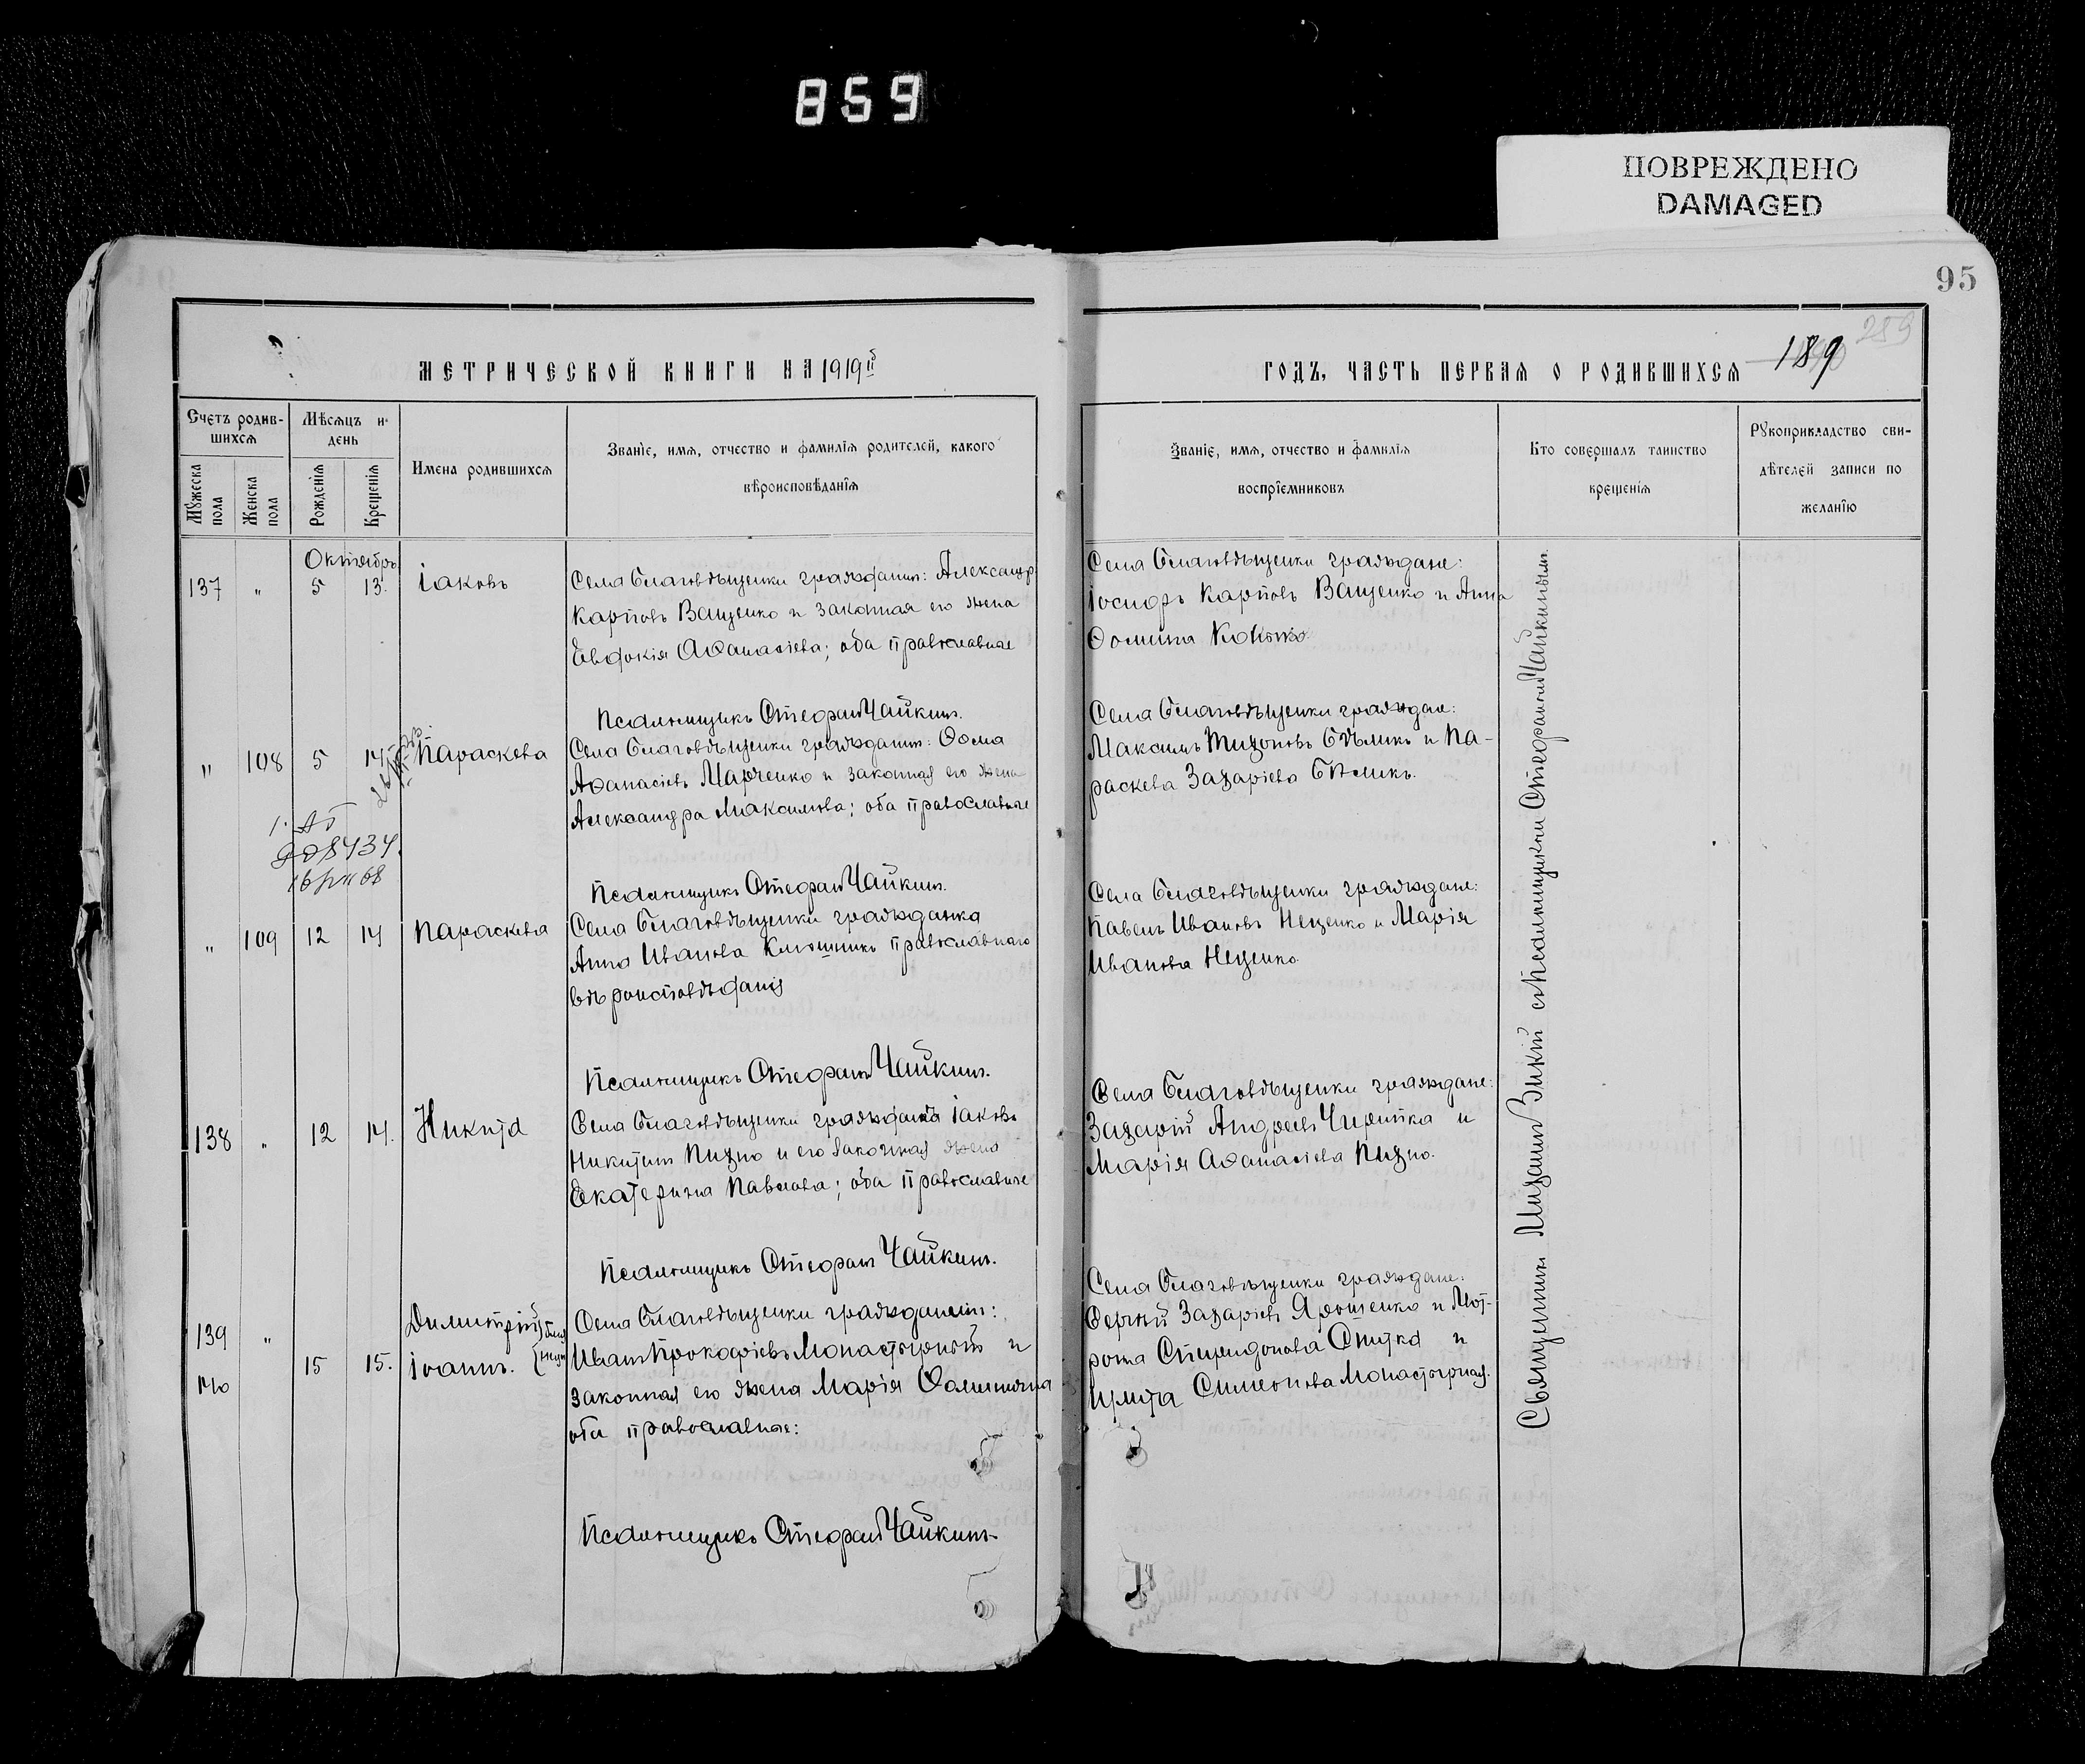 859
ПОВРЕЖДЕНО
DAMAGED
95
259
189
МЕТРИЧЕСКОЙ КНИГИ НА 1919й
ГОДЪ, ЧАСТЬ ПЕРВАЯ О РОДИВШИХСЯ
Счетъ родив-
шихся
Мѣсяцъ и
день
Мужеска пола
Женска пола
Рожденія
Крещенія
Имена родившихся
Званіе, имя, отчество и фамилія родителей, какого
вѣроисповѣданія
Званіе, имя, отчество и фамилія
воспріемниковъ
Кто совершалъ таинство
крещенія
Рукоприкладство сви-
дѣтелей записи по
желанію
Октябрь
137 " 5 13. Іаковъ
Села Благовѣщенки гражданинъ: Александръ
Карповъ Ващенко и законная его жена
Евдокія Аѳанасіева; оба православные
Псаломщикъ Стефанъ Чайкинъ.
Села Благовѣщенки граждане:
Іосифъ Карповъ Ващенко и Анна
Ѳомина
" 108 5 14 Параскева
Села Благовѣщенки гражданинъ: Ѳома
Аѳанасіевъ Марченко и законная его жена
Александра Максимова; оба православные
Псаломщикъ Стефанъ Чайкинъ.
Села Благовѣщенки граждане:
Максимъ Тихоновъ Бѣликъ и Па-
раскева Захаріева Бѣликъ.
" 109 12 14 Параскева
Села Благовѣщенки гражданка
Анна Иванова православнаго
вѣроисповѣданія
Псаломщикъ Стефанъ Чайкинъ.
Села Благовѣщенки граждане:
Павелъ Ивановъ Нещенко и Марія
Иванова Нещенко
138 " 12 14. Никита
Села Благовѣщенки гражданинъ Іаковъ
Никитинъ Пихно и его законная жена
Екатерина Павлова; оба православные
Псаломщикъ Стефанъ Чайкинъ.
Села Благовѣщенки граждане:
Захарій Андреевъ и
Марія Аѳанасіева Пихно.
139 "
140
15 15.
Димитрій
Іоаннъ.
Села Благовѣщенки гражданинъ:
Иванъ Прокофіевъ Монастырный и
законная его жена Марія
оба православные:
Псаломщикъ Стефанъ Чайкинъ
Села Благовѣщенки граждане:
Сергій Захаріевъ Ярошенко и Мот-
рона Спиридонова и
Симеонова Монастырная.
Священникъ Михаилъ Зикій съ Псаломщикомъ Стефаномъ Чайкинымъ.